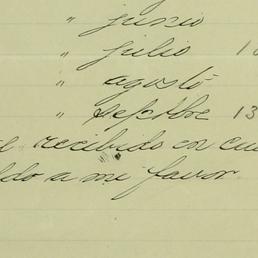 " junio
" julio 1
" agosto
" Sepbre 13
recibido en cu
ldo a mi favor